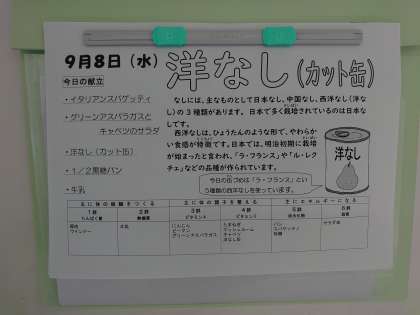 9月8日（水）
洋なし（カット缶）
今日の献立
・イタリアンスパゲッティ
・グリーンアスパラガスと
キャベツのサラダ
・洋なし（カット缶）
・1／2黒糖パン
・牛乳
なしには、主なものとして日本なし、中国なし、西洋なし（洋な
し）の3種類があります。日本で多く栽培されているのは日本な
しです。
西洋なしは、ひょうたんのような形で、やわらか
い食感が特徴です。日本では、明治初期に栽培
が始まったと言われ、「ラ・フランス」や「ル・レク
チェ」などの品種が作られています。
今日の缶づめは「ラ・フランス」とい
う種類の西洋なしを使っています。
洋なし
主に体の組織をつくる
主に体の調子を整える
主にエネルギーになる
1群
2群
3群
4群
5群
6群
たんぱく質
無機質
ビタミンA
ビタミンC
炭水化物
脂質
ウインナー
牛乳
にんじん
ピーマン
グリーンアスパラガス
たまねぎ
マッシュルーム
キャベツ
洋なし缶
パン
スパゲッティ
砂糖
サラダ油